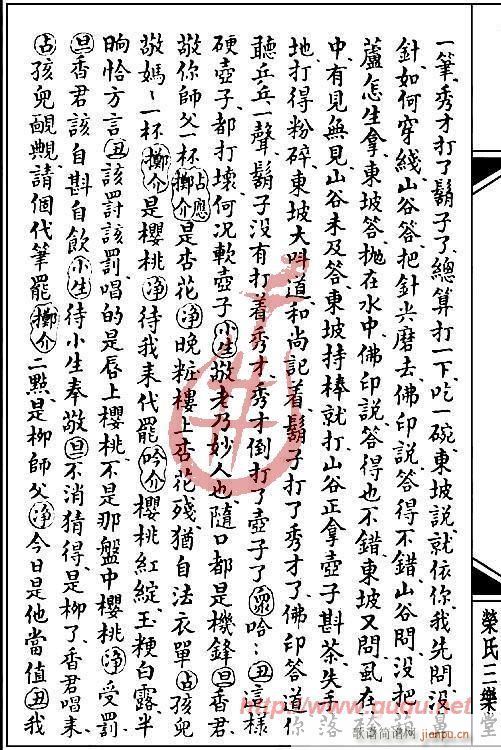 一筆、秀才打了鬍子了、總算打一下、吃一碗、東坡說、就依你、我先問、沒
針如何穿綫、山谷答、把針尖磨去、佛印說、答得不錯、山谷問、沒把
蘆怎生拿、東坡答、抛在水中、佛印說、答得也不錯、東坡又問、虱在
中有見無見、山谷未及答、東坡持棒就打、山谷正拿壺子斟茶、失手
地、打得粉碎、東坡大呌道、和尚記着、鬍子打了秀才了、佛印答道、你
聽乒乓一聲、鬍子沒有打着秀才、秀才倒打了壺子了、衆哈哈丑這樣
硬壺子都打壞、何況軟壺子、小生敬老乃妙人也、隨口都是機鋒、旦香君
敬你師父一杯擲介占應是杏花淨晚粧樓上杏花殘、猶自法衣單占孩兒
敬媽媽一杯、擲介是櫻桃淨待我來代罷吟介櫻桃紅綻、玉粳白露、半
晌恰方言丑該罰該罰、唱的是唇上櫻桃、不是那盤中櫻桃淨受罰
旦香君該自斟自飲小生待小生奉敬旦不消猜得、是柳了、香君唱來
占孩兒靦覥、請個代筆罷擲介二點是柳師父淨今日是他當值丑我
榮氏三樂堂
www.ququ.net
歌谱简谱网
jianpu.cn